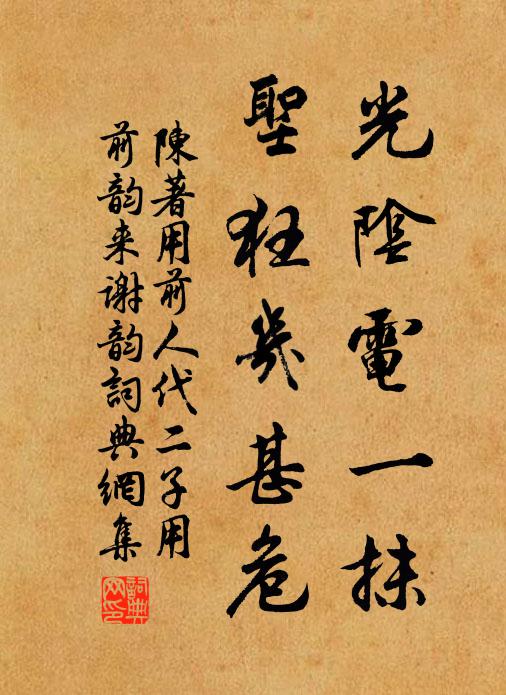 光陰電一抹
聖狂幾甚危
陳著用前人代二子用
前韵来谢韵詞典網集
詞典
网印